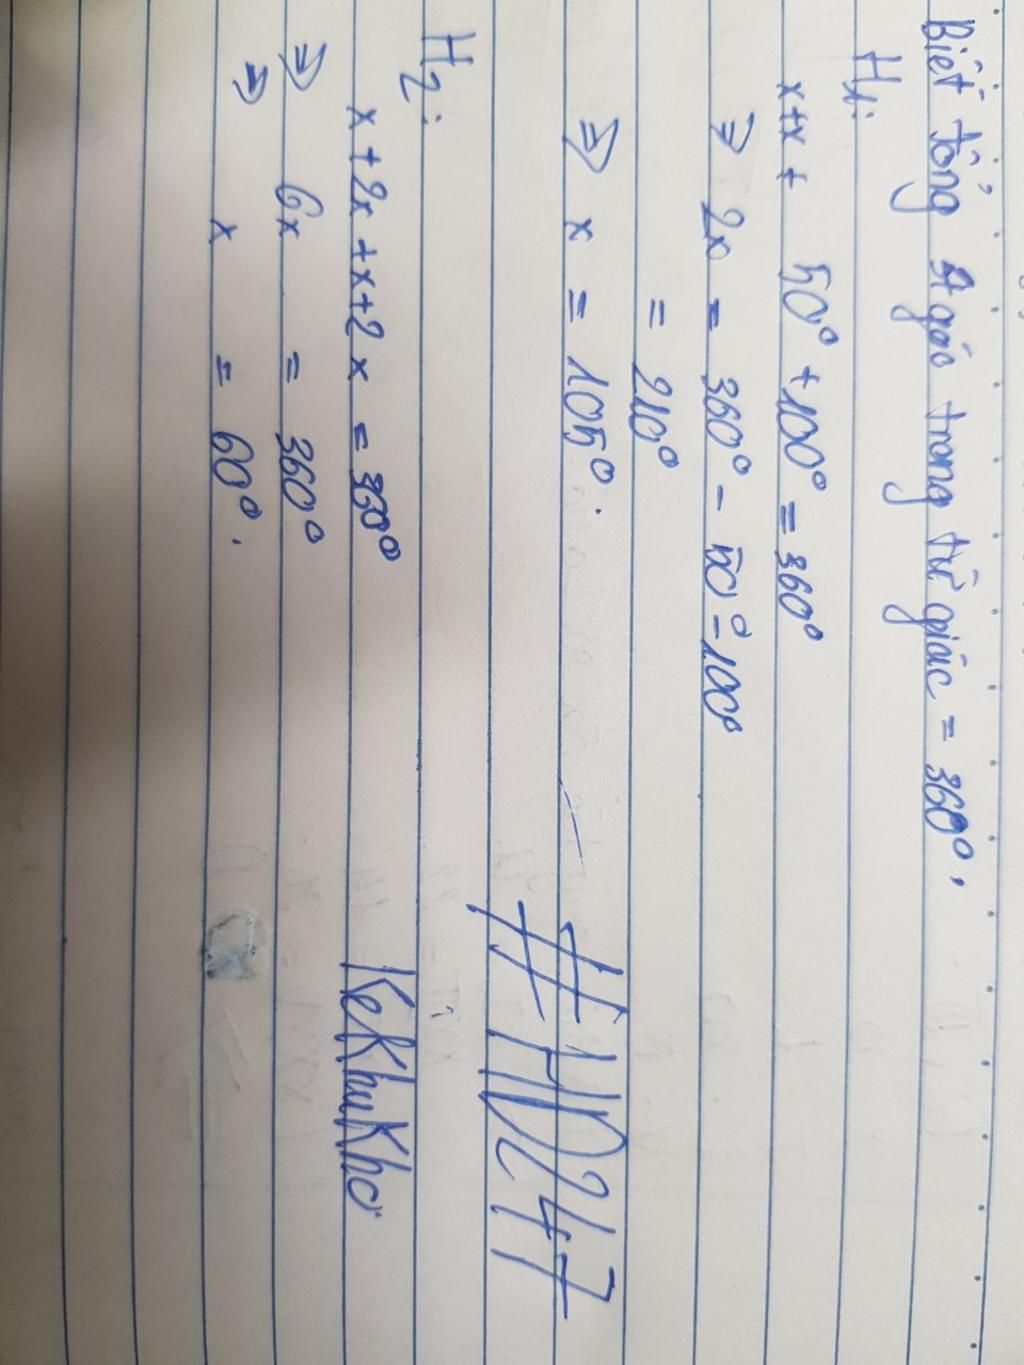 Biết tổng 4 góc trong tứ giác = 360°.
H1:
x+x + 50° + 100° = 360°
=> 2x = 360° - 50° - 100°
= 210°
=> x = 105°.
#HD247
H2:
x + 2x + x + 2x = 360°
KeKhuKho
=> 6x = 360°
=> x = 60°.